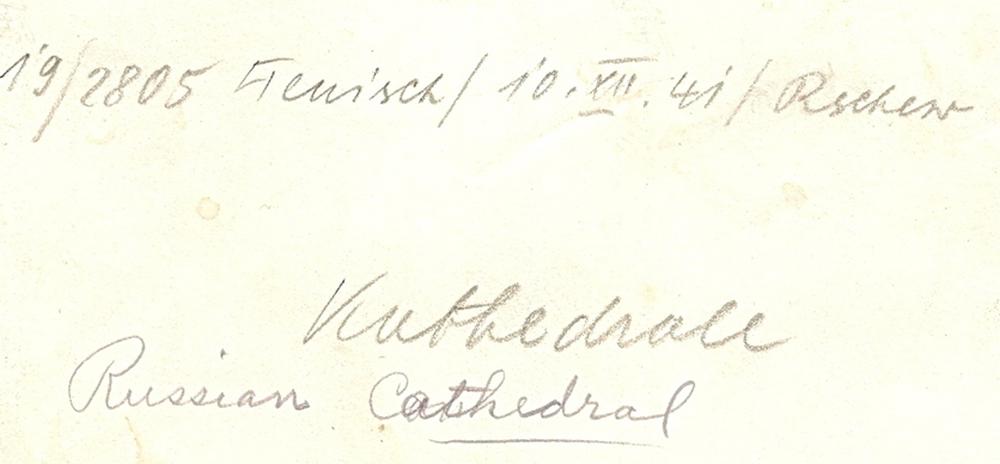 19/2805 Jenisch / 10.XII.41 / Rschew
Kathedrale
Russian Cathedral